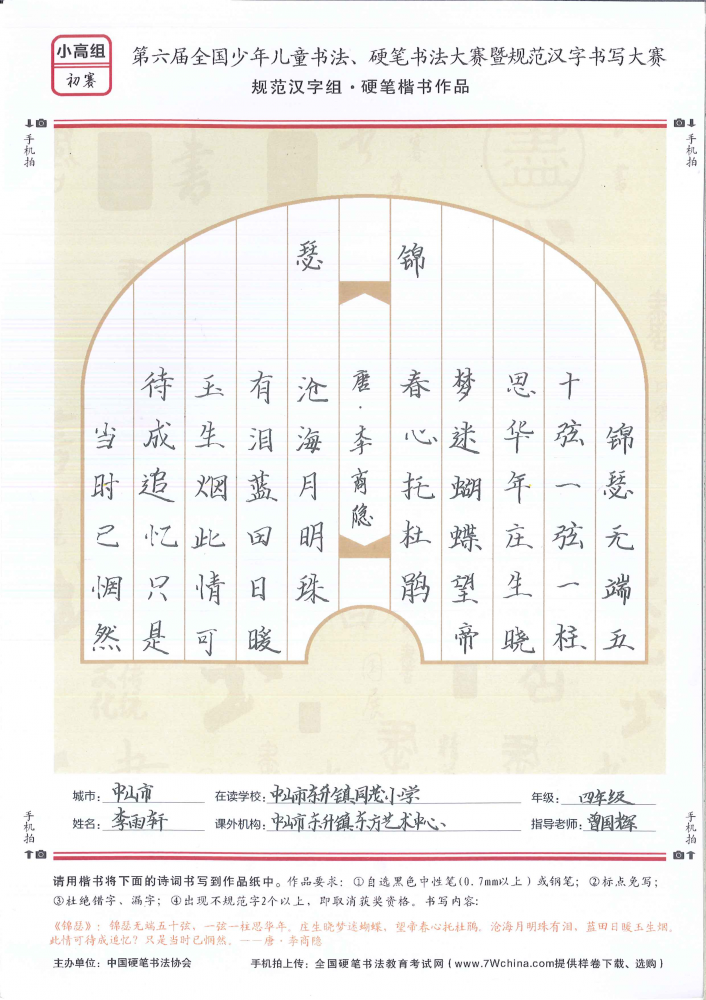 小高组
初赛
第六届全国少年儿童书法、硬笔书法大赛暨规范汉字书写大赛
规范汉字组·硬笔楷书作品
手机拍
手机拍
锦瑟
锦瑟无端五
十弦一弦一柱
思华年庄生晓
梦迷蝴蝶望帝
春心托杜鹃
唐·李商隐
沧海月明珠
有泪蓝田日暖
玉生烟此情可
待成追忆只是
当时已惘然
城市：中山市 在读学校：中山市东升镇同茂小学 年级：四年级
姓名：李雨轩 课外机构：中山市东升镇东方艺术中心 指导老师：曾国辉
手机拍
手机拍
请用楷书将下面的诗词书写到作品纸中。作品要求：①自选黑色中性笔(0.7mm以上)或钢笔；②标点免写；
③杜绝错字、漏字；④出现不规范字2个以上，即取消获奖资格。书写内容：
《锦瑟》：锦瑟无端五十弦，一弦一柱思华年。庄生晓梦迷蝴蝶，望帝春心托杜鹃。沧海月明珠有泪，蓝田日暖玉生烟。
此情可待成追忆？只是当时已惘然。——唐·李商隐
主办单位：中国硬笔书法协会 手机拍上传：全国硬笔书法教育考试网(www.7Wchina.com提供样卷下载、选购)